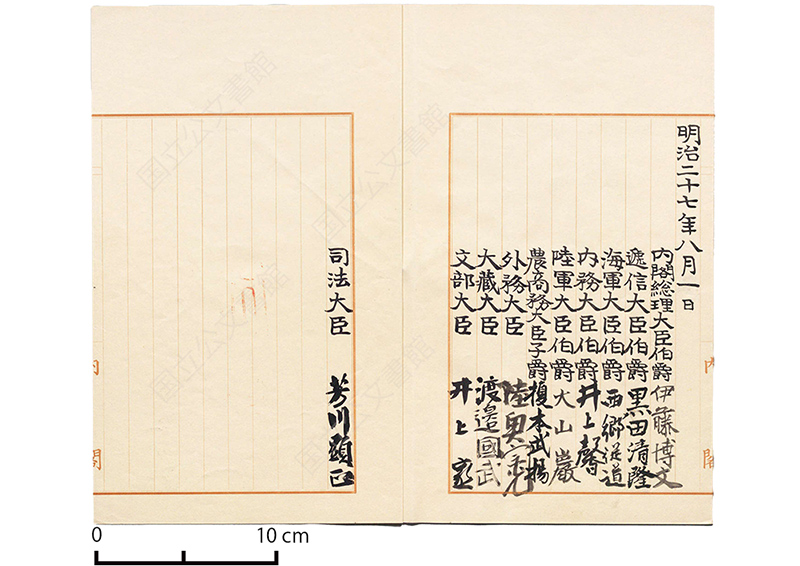 明治二十七年八月一日
内閣総理大臣伯爵伊藤博文
逓信大臣伯爵黒田清隆
海軍大臣伯爵西郷従道
内務大臣伯爵井上馨
陸軍大臣伯爵大山巖
農商務大臣子爵榎本武揚
外務大臣陸奥宗光
大藏大臣渡邉國武
文部大臣井上毅
司法大臣芳川顕正
内閣
内閣
国立公文書館
国立公文書館
国立公文書館
国立公文書館
0 10 cm